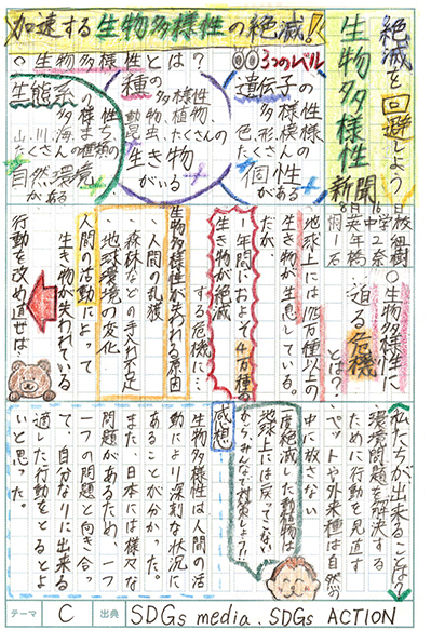 絶滅を回避しよう
生物多様性
新聞
加速する生物多様性の絶滅!
○生物多様性とは?
3つのレベル
遺伝子の多様性
色、形、模様
たくさんの
個性がある
種の多様性
動物、植物
昆虫
たくさんの
生き物がいる
生態系の多様性
山、川、海、森
たくさんの
自然環境がある
○生物多様性に
迫る危機とは?
地球上には175万種以上の
生き物が生息している。
だが、
1年間におよそ4万種の
生き物が絶滅
する危機に…
生物多様性が失われる原因
・人間の乱獲
・森林などの手入れ不足
・地球環境の変化
人間の活動によって
生き物が失われている
行動を改め直せば…
私たちが出来ることは?
環境問題を解決する
ために行動を見直す
ペットや外来種は自然の
中に放さない
一度絶滅した動植物は
地球上には戻ってこない
からみんなで対策しよう?
感想
生物多様性は人間の活
動により深刻な状況に
あることが分かった。
また、日本には様々な
問題があるため、一つ
一つの問題と向き合っ
て、自分なりに出来る
適した行動をとるとよ
いと思った。
テーマ C 出典 SDGs media. SDGs ACTION